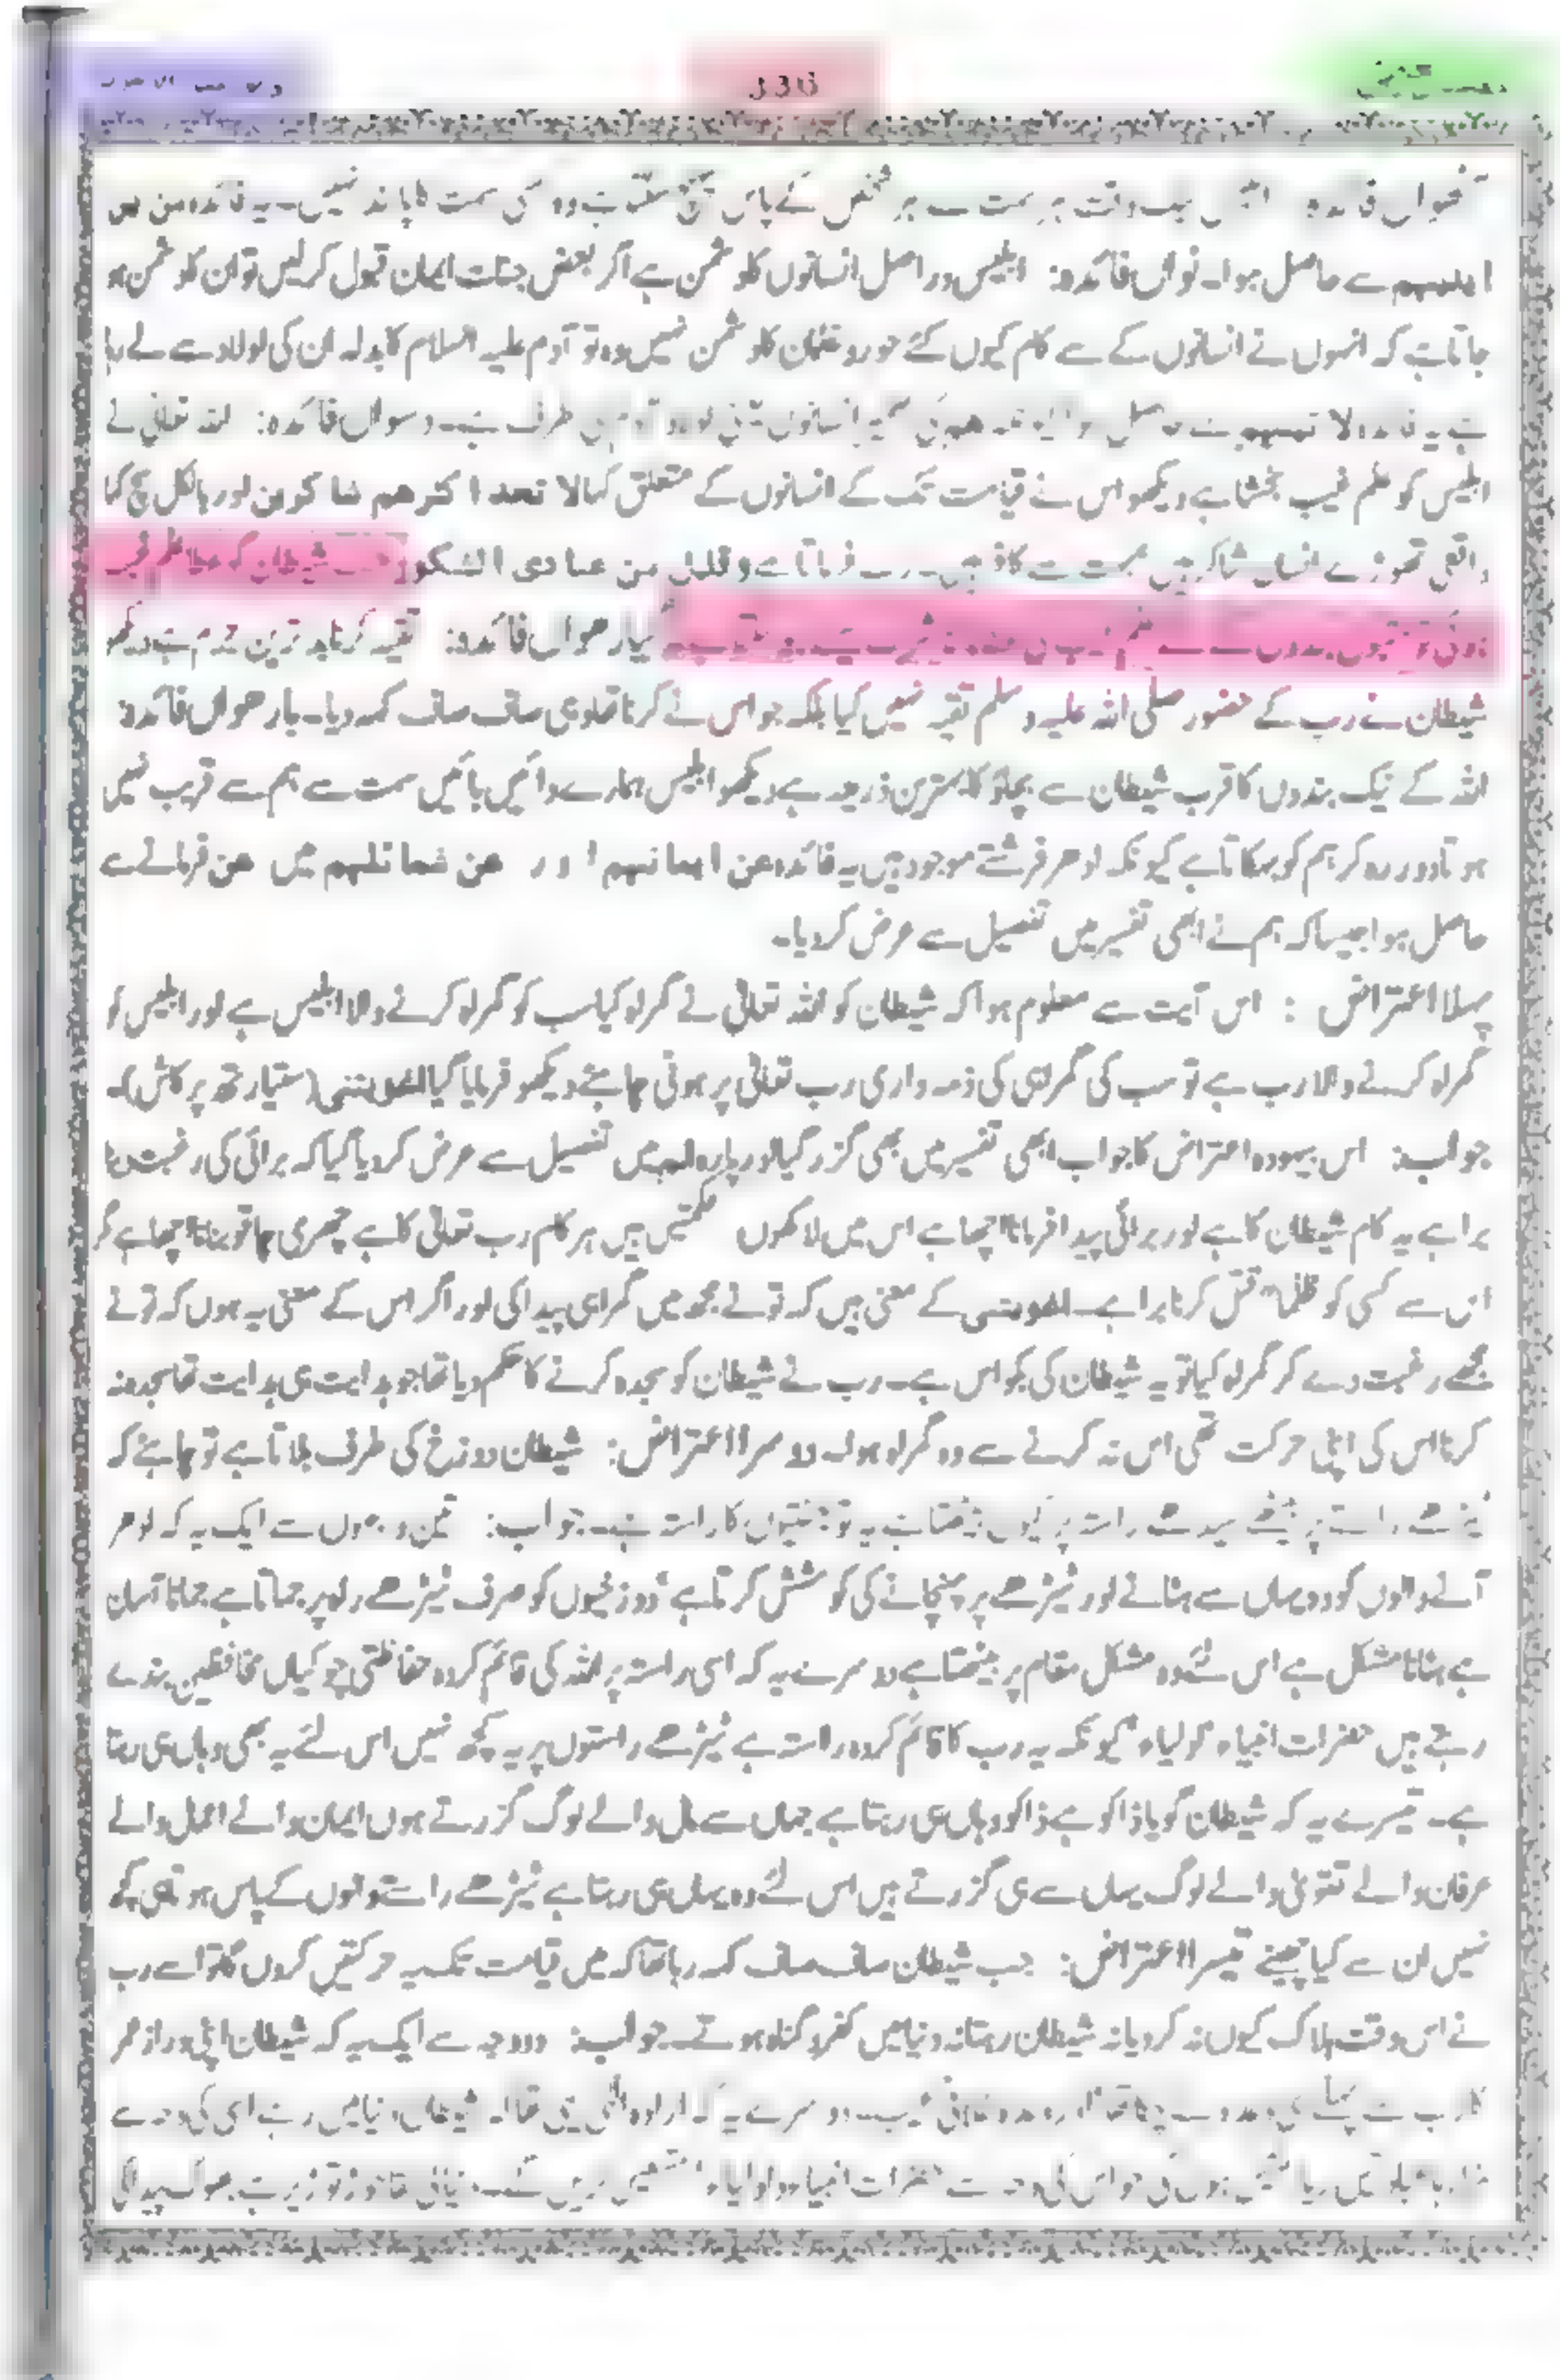 336
آٹھواں فائدہ: ابلیس بیک وقت ہر سمت سے ہر شخص کے پاس پہنچ سکتا ہے وہ کسی سمت کا پابند نہیں۔ یہ فائدہ من بین
ایدیہم سے حاصل ہوا۔ نواں فائدہ: ابلیس دراصل انسانوں کا دشمن ہے اگر بعض جنات ایمان قبول کرلیں تو ان کا دشمن ہو
جاتا ہے کہ انہوں نے انسانوں کے سے کام کیوں کئے حور و غلمان کا دشمن نہیں وہ تو آدم علیہ السلام کا بدلہ ان کی اولاد سے لے رہا
ہے یہ فائدہ لا تینہم سے حاصل ہوا کیونکہ ھم کی ضمیر انسانوں یعنی اولاد آدم کی طرف ہے۔ دسواں فائدہ: اللہ تعالیٰ نے
ابلیس کو علم غیب بخشا ہے دیکھو اس نے قیامت تک کے انسانوں کے متعلق کہا لا تجد اکثرھم شاکرین اور بالکل سچ کہا
واقعی تھوڑے انسان شاکر ہیں بہت سے کافر ہیں۔ رب فرماتا ہے وقلیل من عبادی الشکور جب شیطان کو عطا علم غیب
گیارھواں فائدہ: تقیہ کرنا بدترین جرم ہے دیکھو
شیطان نے رب کے حضور صلی اللہ علیہ و سلم تقیہ نہیں کیا بلکہ جو اس نے کرنا تھا وہی صاف صاف کہہ دیا۔ بارھواں فائدہ:
اللہ کے نیک بندوں کا قرب شیطان سے بچاؤ کا بہترین ذریعہ ہے دیکھو ابلیس ہمارے دائیں بائیں سمت سے ہم سے قریب نہیں
ہوتا دور رہ کر ہم کو بہکاتا ہے کیونکہ ادھر فرشتے موجود ہیں یہ فائدہ عن ایمانہم اور عن شمائلہم میں عن فرمانے سے
حاصل ہوا جیسا کہ ہم نے ابھی تفسیر میں تفصیل سے عرض کردیا۔
پہلا اعتراض : اس آیت سے معلوم ہوا کہ شیطان کو اللہ تعالیٰ نے گمراہ کیا سب کو گمراہ کرنے والا ابلیس ہے اور ابلیس کو
گمراہ کرنے والا رب ہے تو سب کی گمراہی کی ذمہ داری رب تعالیٰ پر ہونی چاہئے دیکھو فرمایا گیا اغویتنی (ستیارتھ پرکاش)۔
جواب: اس بیہودہ اعتراض کا جواب ابھی تفسیر میں بھی گزر گیا اور پارہ الم میں تفصیل سے عرض کردیا گیا کہ برائی کی رغبت دینا
برا ہے یہ کام شیطان کا ہے اور برائی پیدا فرمانا اچھا ہے اس میں لاکھوں حکمتیں ہیں ہر کام رب تعالیٰ کا ہے چھری چاقو بنانا اچھا ہے مگر
اس سے کسی کو ظلماً قتل کرنا برا ہے۔ اغویتنی کے معنی ہیں کہ تو نے مجھ میں گمراہی پیدا کی اور اگر اس کے معنی یہ ہوں کہ تو نے
مجھے رغبت دے کر گمراہ کیا تو یہ شیطان کی بکواس ہے۔ رب نے شیطان کو سجدہ کرنے کا حکم دیا تھا جو ہدایت ہی ہدایت تھا سجدہ نہ
کرنا اس کی اپنی حرکت تھی اس نہ کرنے سے وہ گمراہ ہوا۔ دوسرا اعتراض: شیطان دوزخ کی طرف بلاتا ہے تو چاہئے کہ
ٹیڑھے راستہ پر بیٹھے سیدھے راستہ پر کیوں بیٹھتا ہے یہ تو جنتیوں کا راستہ ہے۔ جواب: تین وجہوں سے ایک یہ کہ ادھر
آنے والوں کو وہ یہاں سے ہٹانے اور ٹیڑھے پر پہنچانے کی کوشش کرتا ہے دوزخیوں کو صرف ٹیڑھے راہ پر جماتا ہے جمانا آسان
ہے ہٹانا مشکل ہے اس لئے وہ مشکل مقام پر بیٹھتا ہے دوسرے یہ کہ اسی راستہ پر اللہ کی قائم کردہ حفاظتی چوکیاں محافظین بندے
رہتے ہیں حضرات انبیاء اولیاء کیونکہ یہ رب کا قائم کردہ راستہ ہے ٹیڑھے راستوں پر یہ کچھ نہیں اس لئے یہ بھی وہاں ہی رہتا
ہے۔ تیسرے یہ کہ شیطان گویا ڈاکو ہے ڈاکو وہاں ہی رہتا ہے جہاں سے مال والے لوگ گزرتے ہوں ایمان والے اعمال والے
عرفان والے تقویٰ والے لوگ یہاں سے ہی گزرتے ہیں اس لئے وہ یہاں ہی رہتا ہے ٹیڑھے راستے والوں کے پاس ہوتا ہی کچھ
نہیں ان سے کیا چھینے تیسرا اعتراض: جب شیطان صاف صاف کہہ رہا تھا کہ میں قیامت تک یہ حرکتیں کروں گا تو اسے رب
نے اسی وقت ہلاک کیوں نہ کردیا نہ شیطان رہتا نہ دنیا میں کفر و گناہ ہوتے۔ جواب: دو وجہ سے ایک یہ کہ شیطان اپنی دراز عمر
کا رب سے پہلے ہی وعدہ لے چکا تھا اور وعدہ خلافی عیب۔ دوسرے یہ کہ ارادہ الٰہی یہی تھا کہ شیطان دنیا میں رہے اسی کی وجہ سے
ہوں گی حضرات انبیاء و اولیاء